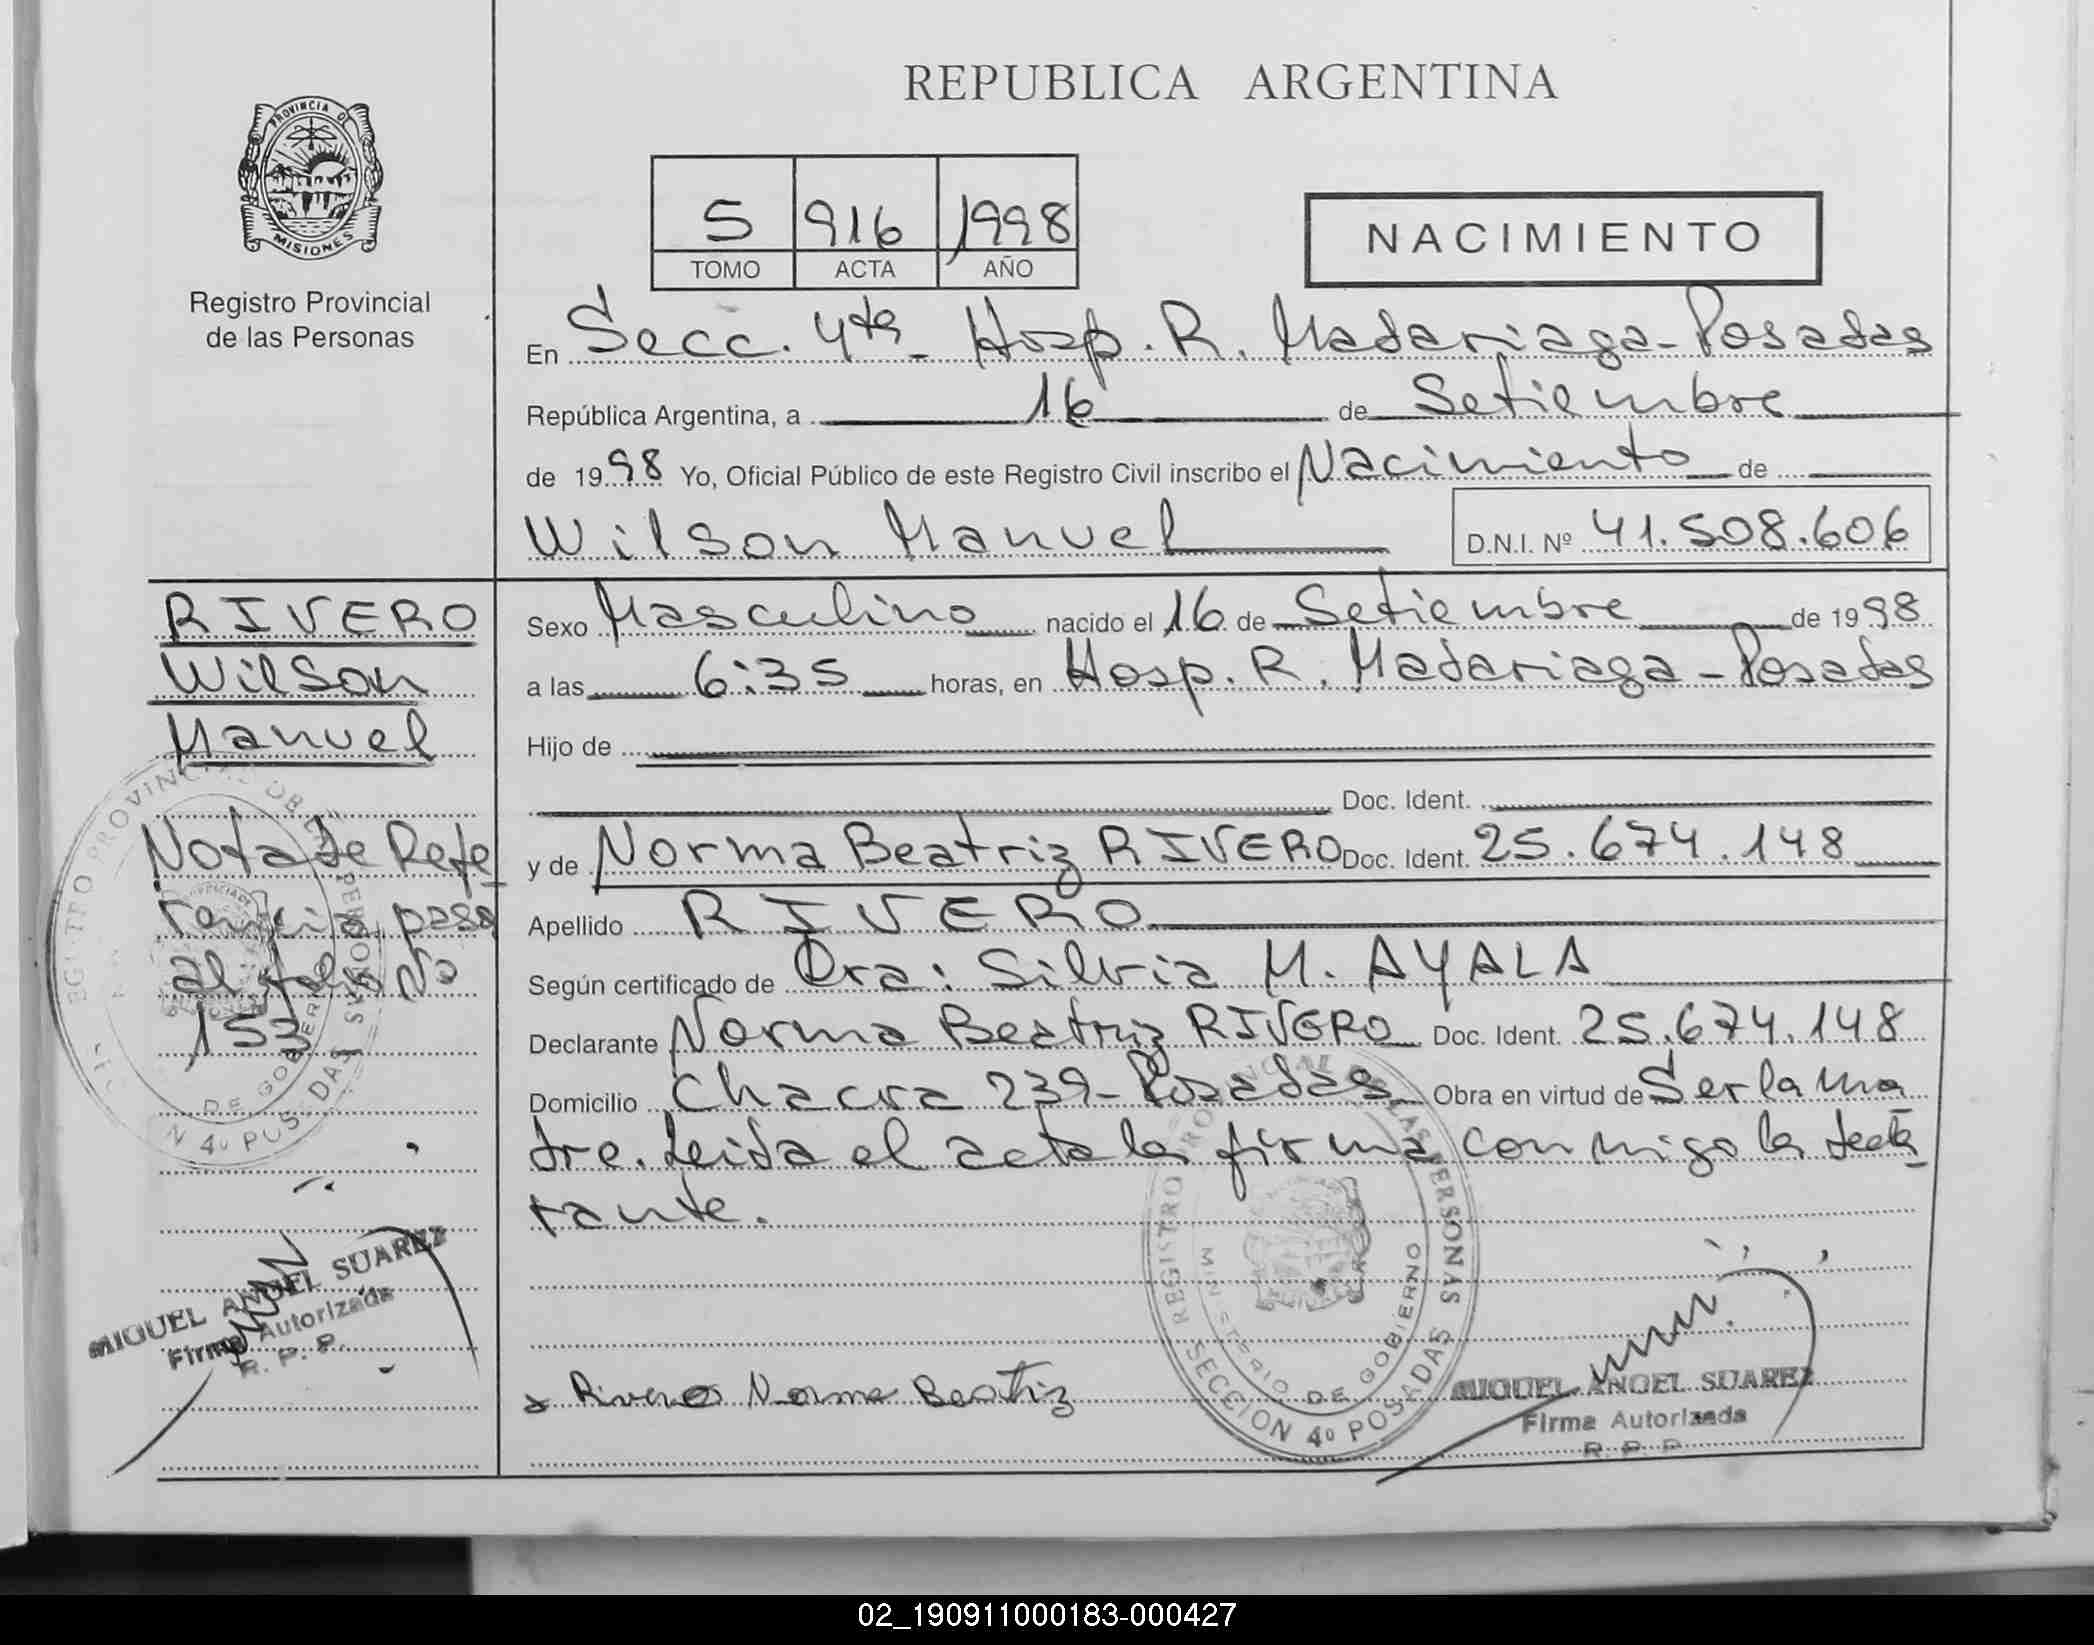 REPUBLICA ARGENTINA
PROVINCIA DE
MISIONES
Registro Provincial
de las Personas
5 916 1998
TOMO ACTA AÑO
NACIMIENTO
En Secc. 4ta - Hosp. R. Madariaga - Posadas
República Argentina, a 16 de Setiembre
de 1998 Yo, Oficial Público de este Registro Civil inscribo el Nacimiento de
Wilson Manuel D.N.I. Nº 41.508.606
RIVERO
Wilson
Manuel
Nota de Refe
rencia pasa
al folio No
153
Sexo Masculino nacido el 16 de Setiembre de 1998
a las 6:35 horas, en Hosp. R. Madariaga - Posadas
Hijo de
Doc. Ident.
y de Norma Beatriz RIVERO Doc. Ident. 25.674.148
Apellido RIVERO
Según certificado de Dra: Silvia M. AYALA
Declarante Norma Beatriz RIVERO Doc. Ident. 25.674.148
Domicilio Chacra 239 - Posadas Obra en virtud de Ser la ma
dre. Leida el acta la firma conmigo la decla
rante.
REGISTRO PROVINCIAL DE LAS PERSONAS
MINISTERIO DE GOBIERNO
SECCION 4º POSADAS
MIGUEL ANGEL SUAREZ
Firma Autorizada
R. P. P.
Rivero Norma Beatriz
MIGUEL ANGEL SUAREZ
Firma Autorizada
R. P. P.
02_190911000183-000427